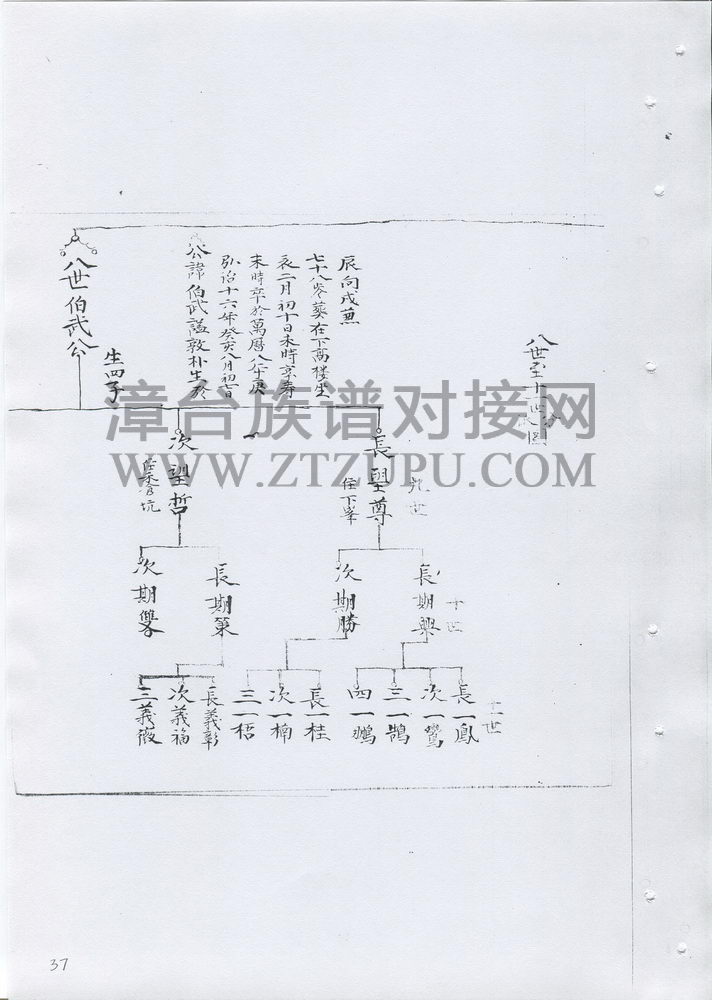 八世至十一世分圖
八世伯武公
生四子
公諱伯武謚敦朴生於
弘治十六年癸亥八月初一日
未時卒於萬曆八年庚
辰二月初十日未時享壽
七十八岁葬在下高楼坐
辰向戌兼
九世
長望尊
住下峯
次望哲
十世
長期興
次期勝
長期策
次期雙
十一世
長一鳳
次一鸞
三一鵲
四一鵰
長一桂
次一楠
三一梧
長義彰
次義福
三義徵
漳台族谱对接网
WWW.ZTZUPU.COM
37